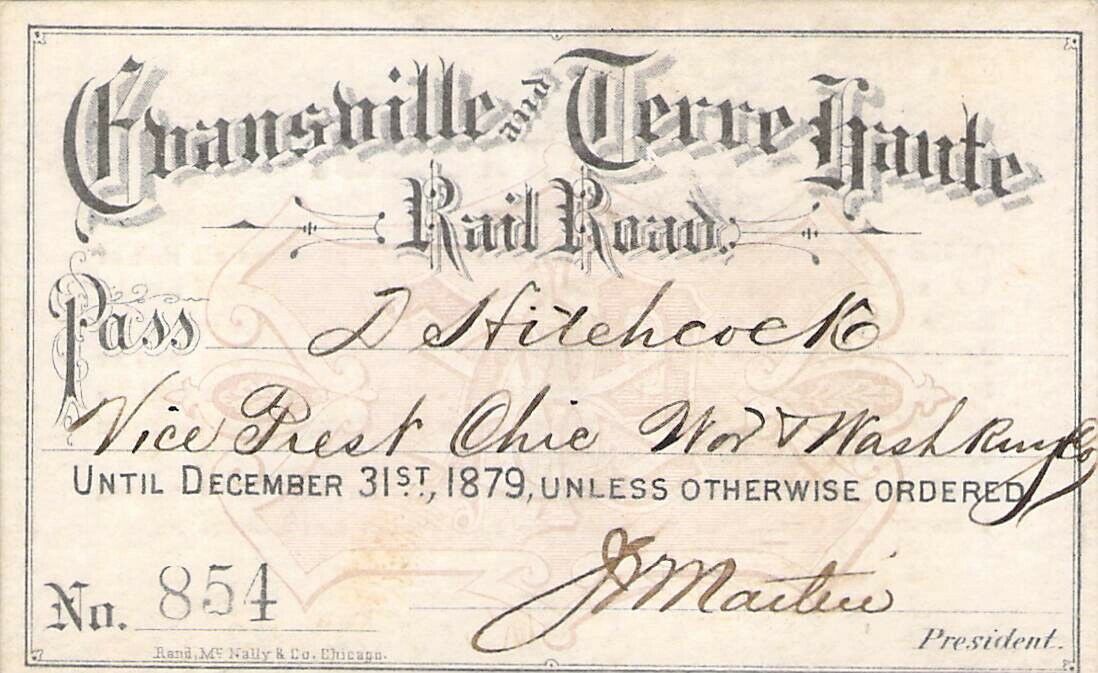 Evansville and Terre Haute
Rail Road.
Pass D Hitchcock
Vice Prest Chic Wor & Wash Co
UNTIL DECEMBER 31ST., 1879, UNLESS OTHERWISE ORDERED
No. 854
Martin
President.
Rand, Mc Nally & Co. Chicago.